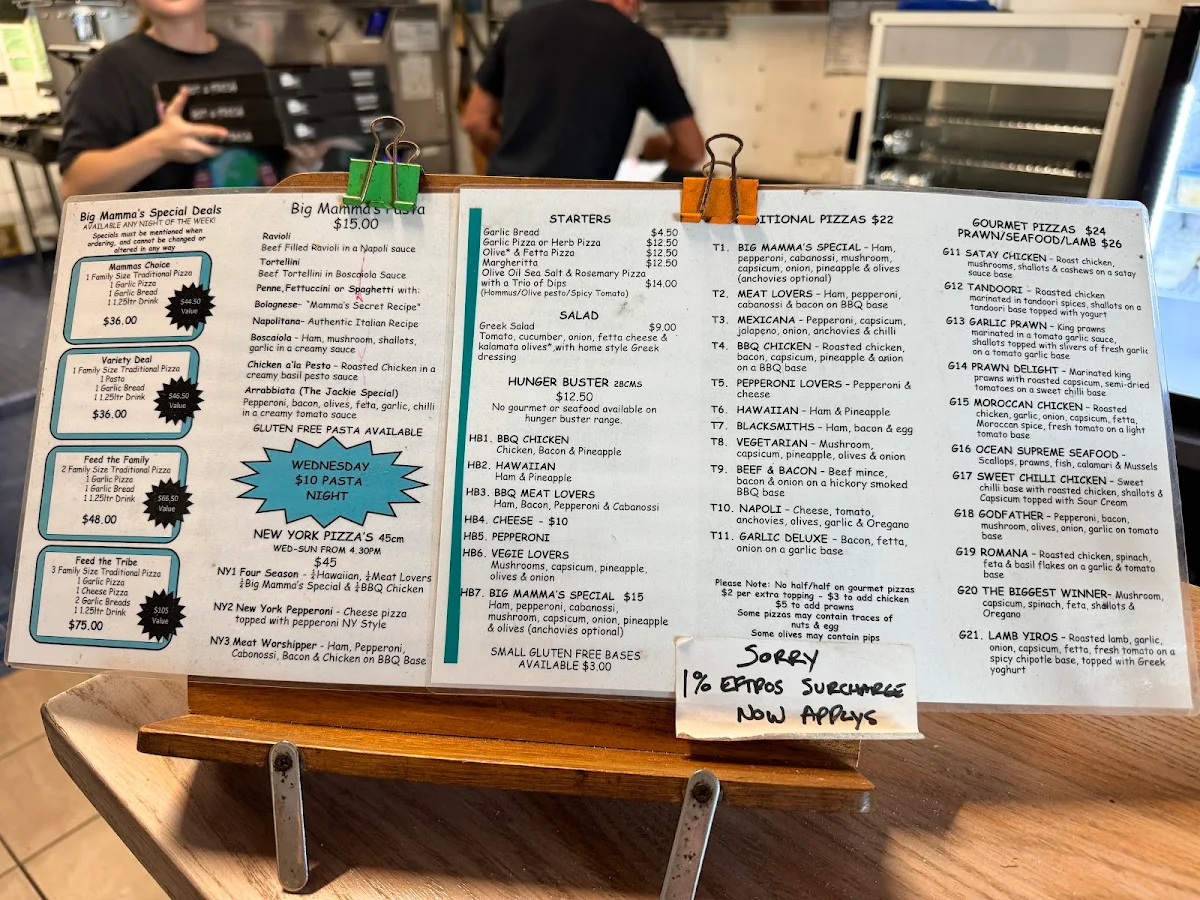 Big Mamma's Special Deals
AVAILABLE ANY NIGHT OF THE WEEK!
Specials must be mentioned when
ordering, and cannot be changed or
altered in any way
Mammas Choice
1 Family Size Traditional Pizza
1 Garlic Pizza
1 Garlic Bread
1 1.25ltr Drink
$36.00
$44.50
Value
Variety Deal
1 Family Size Traditional Pizza
1 Pasta
1 Garlic Bread
1 1.25ltr Drink
$36.00
$46.50
Value
Feed the Family
2 Family Size Traditional Pizza
1 Garlic Pizza
1 Garlic Bread
1 1.25ltr Drink
$48.00
$66.50
Value
Feed the Tribe
3 Family Size Traditional Pizza
1 Garlic Pizza
1 Cheese Pizza
2 Garlic Breads
1 1.25ltr Drink
$75.00
$105
Value
Big Mamma's Pasta
$15.00
Ravioli
Beef Filled Ravioli in a Napoli sauce
Tortellini
Beef Tortellini in Boscaiola Sauce
Penne,Fettuccini or Spaghetti with:
Bolognese- "Mamma's Secret Recipe"
Napolitana- Authentic Italian Recipe
Boscaiola - Ham, mushroom, shallots,
garlic in a creamy sauce
Chicken a'la Pesto - Roasted Chicken in a
creamy basil pesto sauce
Arrabbiata (The Jackie Special)
Pepperoni, bacon, olives, feta, garlic, chilli
in a creamy tomato sauce
GLUTEN FREE PASTA AVAILABLE
WEDNESDAY
$10 PASTA
NIGHT
NEW YORK PIZZA'S 45cm
WED-SUN FROM 4.30PM
$45
NY1 Four Season - ¼Hawaiian, ¼Meat Lovers
¼Big Mamma's Special & ¼BBQ Chicken
NY2 New York Pepperoni - Cheese pizza
topped with pepperoni NY Style
NY3 Meat Worshipper - Ham, Pepperoni,
Cabonossi, Bacon & Chicken on BBQ Base
STARTERS
Garlic Bread $4.50
Garlic Pizza or Herb Pizza $12.50
Olive* & Fetta Pizza $12.50
Margheritta $12.50
Olive Oil Sea Salt & Rosemary Pizza
with a Trio of Dips $14.00
(Hommus/Olive pesto/Spicy Tomato)
SALAD
Greek Salad $9.00
Tomato, cucumber, onion, fetta cheese &
kalamata olives*,with home style Greek
dressing
HUNGER BUSTER 28CMS
$12.50
No gourmet or seafood available on
hunger buster range.
HB1. BBQ CHICKEN
Chicken, Bacon & Pineapple
HB2. HAWAIIAN
Ham & Pineapple
HB3. BBQ MEAT LOVERS
Ham, Bacon, Pepperoni & Cabanossi
HB4. CHEESE - $10
HB5. PEPPERONI
HB6. VEGIE LOVERS
Mushrooms, capsicum, pineapple,
olives & onion
HB7. BIG MAMMA'S SPECIAL $15
Ham, pepperoni, cabanossi,
mushroom, capsicum, onion, pineapple
& olives (anchovies optional)
SMALL GLUTEN FREE BASES
AVAILABLE $3.00
DITIONAL PIZZAS $22
T1. BIG MAMMA'S SPECIAL - Ham,
pepperoni, cabanossi, mushroom,
capsicum, onion, pineapple & olives
(anchovies optional)
T2. MEAT LOVERS - Ham, pepperoni,
cabanossi & bacon on BBQ base
T3. MEXICANA - Pepperoni, capsicum,
jalapeno, onion, anchovies & chilli
T4. BBQ CHICKEN - Roasted chicken,
bacon, capsicum, pineapple & onion
on a BBQ base
T5. PEPPERONI LOVERS - Pepperoni &
cheese
T6. HAWAIIAN - Ham & Pineapple
T7. BLACKSMITHS - Ham, bacon & egg
T8. VEGETARIAN - Mushroom,
capsicum, pineapple, olives & onion
T9. BEEF & BACON - Beef mince,
bacon & onion on a hickory smoked
BBQ base
T10. NAPOLI - Cheese, tomato,
anchovies, olives, garlic & Oregano
T11. GARLIC DELUXE - Bacon, fetta,
onion on a garlic base
Please Note: No half/half on gourmet pizzas
$2 per extra topping - $3 to add chicken
$5 to add prawns
Some pizzas may contain traces of
nuts & egg
Some olives may contain pips
SORRY
1% EFTPOS SURCHARGE
NOW APPLYS
GOURMET PIZZAS $24
PRAWN/SEAFOOD/LAMB $26
G11 SATAY CHICKEN - Roast chicken,
mushrooms, shallots & cashews on a satay
sauce base
G12 TANDOORI - Roasted chicken
marinated in tandoori spices, shallots on a
tandoori base topped with yogurt
G13 GARLIC PRAWN - King prawns
marinated in a tomato garlic sauce,
shallots topped with slivers of fresh garlic
on a tomato base
G14 PRAWN DELIGHT - Marinated king
prawns with roasted capsicum, semi-dried
tomatoes on a sweet chilli base
G15 MOROCCAN CHICKEN - Roasted
chicken, garlic, onion, capsicum, fetta,
Moroccan spice, fresh tomato on a light
tomato base
G16 OCEAN SUPREME SEAFOOD -
Scallops, prawns, fish, calamari & Mussels
G17 SWEET CHILLI CHICKEN - Sweet
chilli base with roasted chicken, shallots &
Capsicum topped with Sour Cream
G18 GODFATHER - Pepperoni, bacon,
mushroom, olives, onion, garlic on tomato
base
G19 ROMANA - Roasted chicken, spinach,
feta & basil flakes on a garlic & tomato
base
G20 THE BIGGEST WINNER- Mushroom,
capsicum, spinach, feta, shallots &
Oregano
G21. LAMB YIROS - Roasted lamb, garlic,
onion, capsicum, fetta, fresh tomato on a
spicy chipotle base, topped with Greek
yoghurt